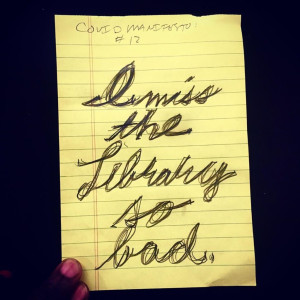 COVID MANIFESTO
# 12
I miss
the
Library
so
bad.